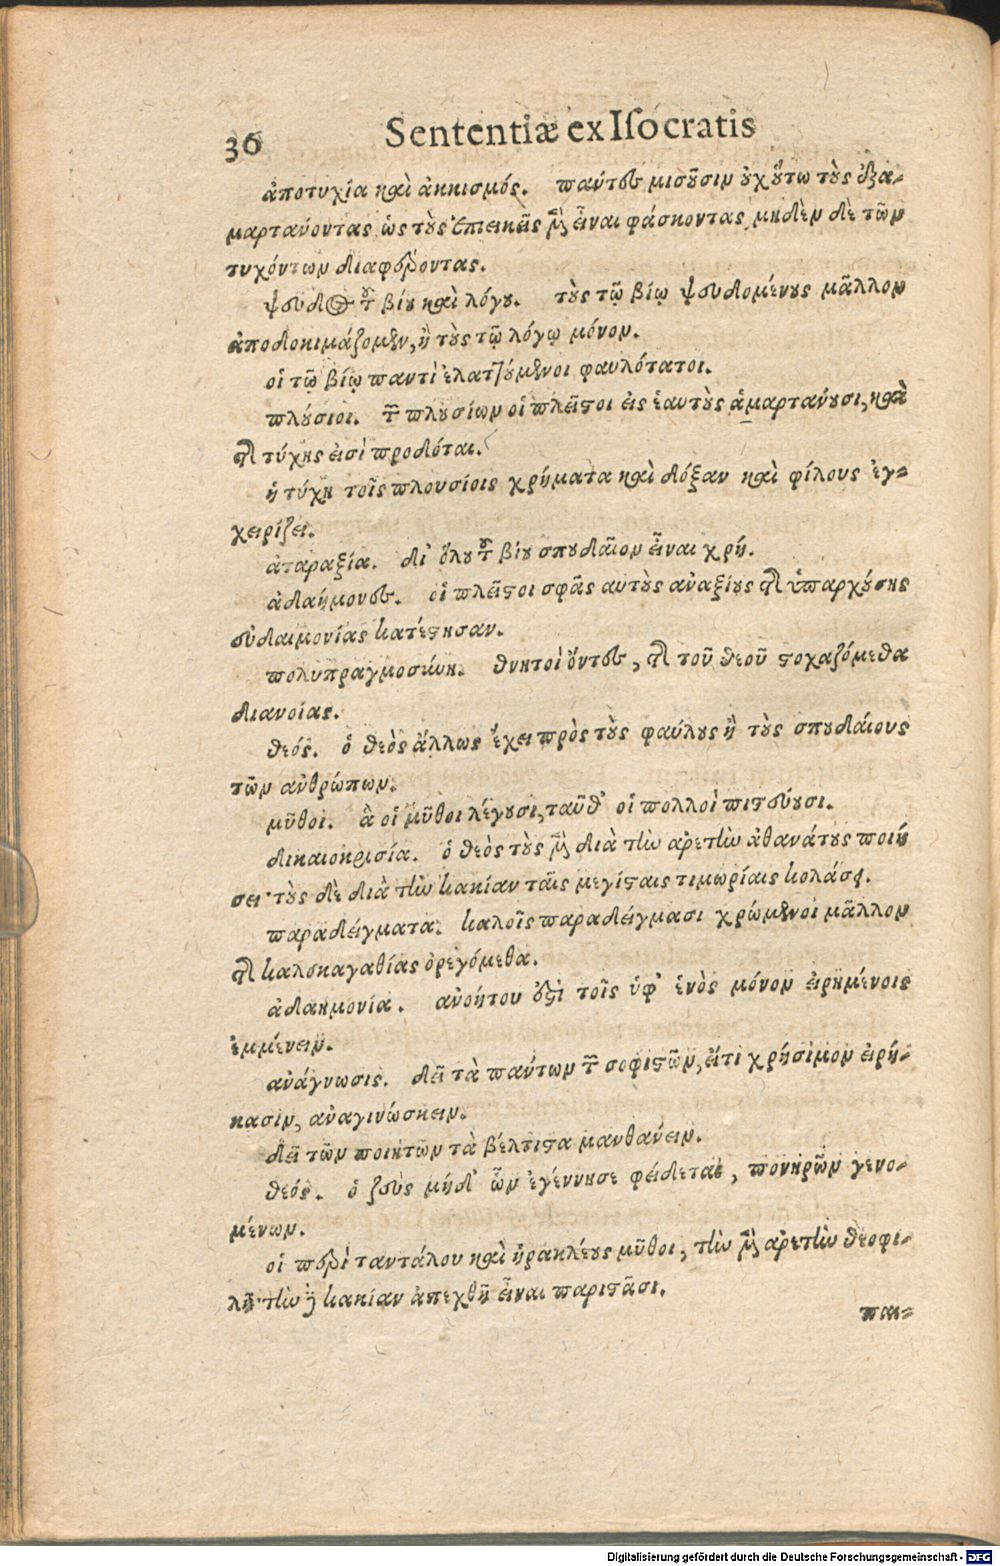 36 Sententiæ ex Iſocratis
ἀποτυχία καὶ ἀκκισμός. παύτες μισοῦσιν οὐχ οὕτω τοὺς ἐξα-
μαρτάνοντας ὡς τοὺς ἐπιεικεῖς μὲν εἶναι φάσκοντας, μηδὲν δὲ τῶν
τυχόντων διαφέροντας.
ψεῦδος τοῦ βίου καὶ λόγου. τοὺς τῷ βίῳ ψευδομένους μᾶλλον
ἀποδοκιμάζομεν, ἢ τοὺς τῷ λόγῳ μόνον.
οἱ τῷ βίῳ παντὶ ἐλαττούμενοι φαυλότατοι.
πλούσιοι. τῶν πλουσίων οἱ πλεῖστοι εἰς ἑαυτοὺς ἁμαρτάνουσι, καὶ
τῆς τύχης εἰσὶ προδόται.
ἡ τύχη τοῖς πλουσίοις χρήματα καὶ δόξαν καὶ φίλους ἐγ-
χειρίζει.
ἀταραξία. δι' ὅλου τοῦ βίου σπουδαῖον εἶναι χρή.
ἀδαήμονες. οἱ πλεῖστοι σφᾶς αὐτοὺς ἀναξίους τῆς ὑπαρχούσης
εὐδαιμονίας κατέστησαν.
πολυπραγμοσύνη. θνητοὶ ὄντες, τῆς τοῦ θεοῦ στοχαζόμεθα
διανοίας.
θεός. ὁ θεὸς ἄλλως ἔχει πρὸς τοὺς φαύλους ἢ τοὺς σπουδαίους
τῶν ἀνθρώπων.
μῦθοι. ἃ οἱ μῦθοι λέγουσι, ταῦθ' οἱ πολλοὶ πιστεύουσι.
δικαιοκρισία. ὁ θεὸς τοὺς μὲν διὰ τὴν ἀρετὴν ἀθανάτους ποιή
σει· τοὺς δὲ διὰ τὴν κακίαν ταῖς μεγίσταις τιμωρίαις κολάσει.
παραδείγματα. καλοῖς παραδείγμασι χρώμενοι μᾶλλον
τῆς καλοκαγαθίας ὀρεγόμεθα.
ἀδαημονία. ἀνοήτου ἐστὶ τοῖς ὑφ' ἑνὸς μόνον εἰρημένοις
ἐμμένειν.
ἀνάγνωσις. δεῖ τὰ πάντων τῶν σοφιστῶν, εἴ τι χρήσιμον εἰρή-
κασιν, ἀναγινώσκειν.
δεῖ τῶν ποιητῶν τὰ βέλτιστα μανθάνειν.
θεός. ὁ ζεὺς μηδ' ὧν ἐγέννησε φείδεται, πονηρῶν γενο-
μένων.
οἱ περὶ ταντάλου καὶ ἡρακλέους μῦθοι, τὴν μὲν ἀρετὴν θεοφι-
λῆ· τὴν δὲ κακίαν ἀπεχθῆ εἶναι παριστᾶσι.
παι-
Digitalisierung gefördert durch die Deutsche Forschungsgemeinschaft - DFG